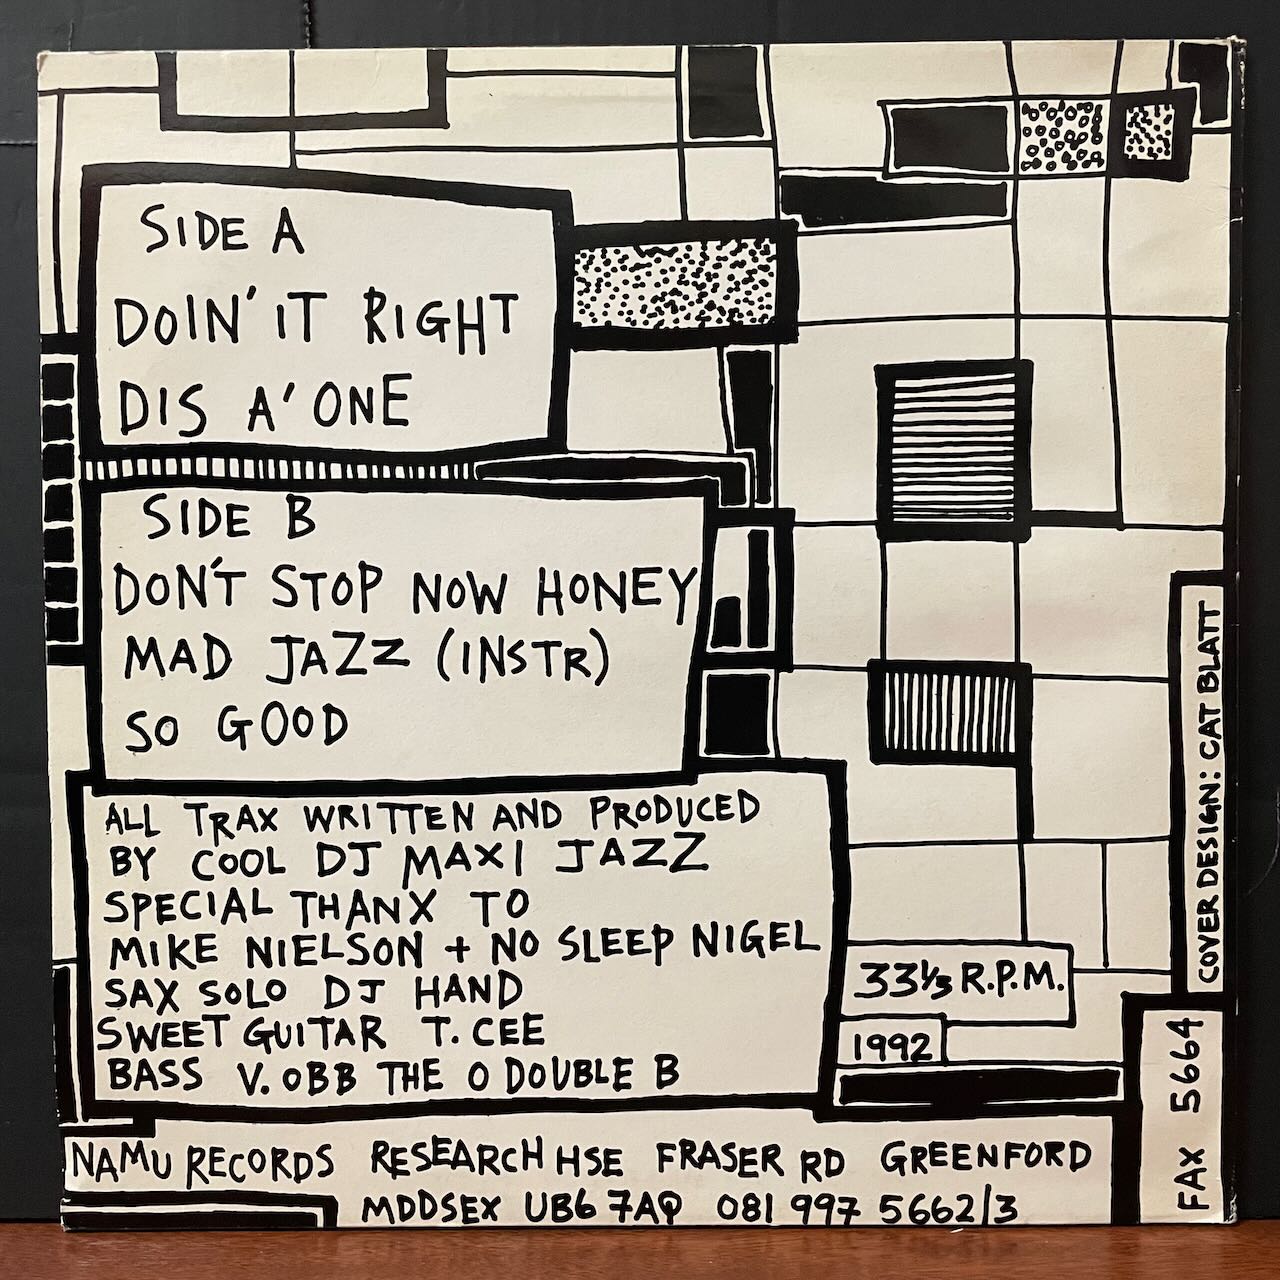 SIDE A
DOIN' IT RIGHT
DIS A' ONE
SIDE B
DON'T STOP NOW HONEY
MAD JAZZ (INSTR)
SO GOOD
ALL TRAX WRITTEN AND PRODUCED
BY COOL DJ MAXI JAZZ
SPECIAL THANX TO
MIKE NIELSON + NO SLEEP NIGEL
SAX SOLO DJ HAND
SWEET GUITAR T. CEE
BASS V. OBB THE O DOUBLE B
33 1/3 R.P.M.
1992
COVER DESIGN: CAT BLATT
FAX 5664
NAMU RECORDS RESEARCH HSE FRASER RD GREENFORD
MDDSEX UB6 7AQ 081 997 5662/3